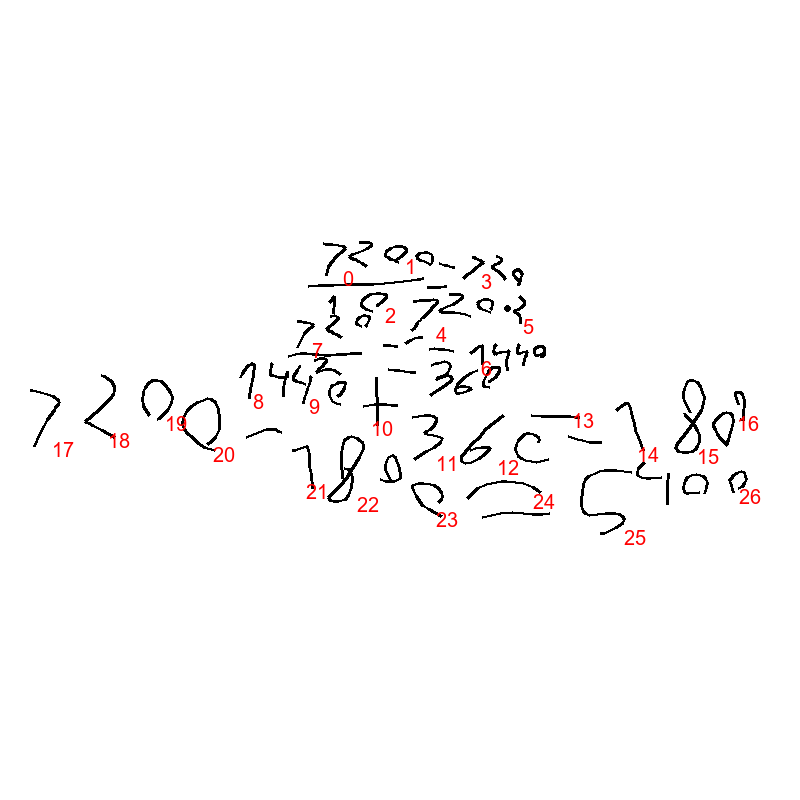 7200 = 720
10 720·2
720 = 1440
2 = 360
1440 + 360 = 1800
7200 - 1800 = 5400
0 1 3
2 4 5
7 6
8 9 10
11 12 13 14 15 16
17 18 19 20
21 22 23 24 25 26